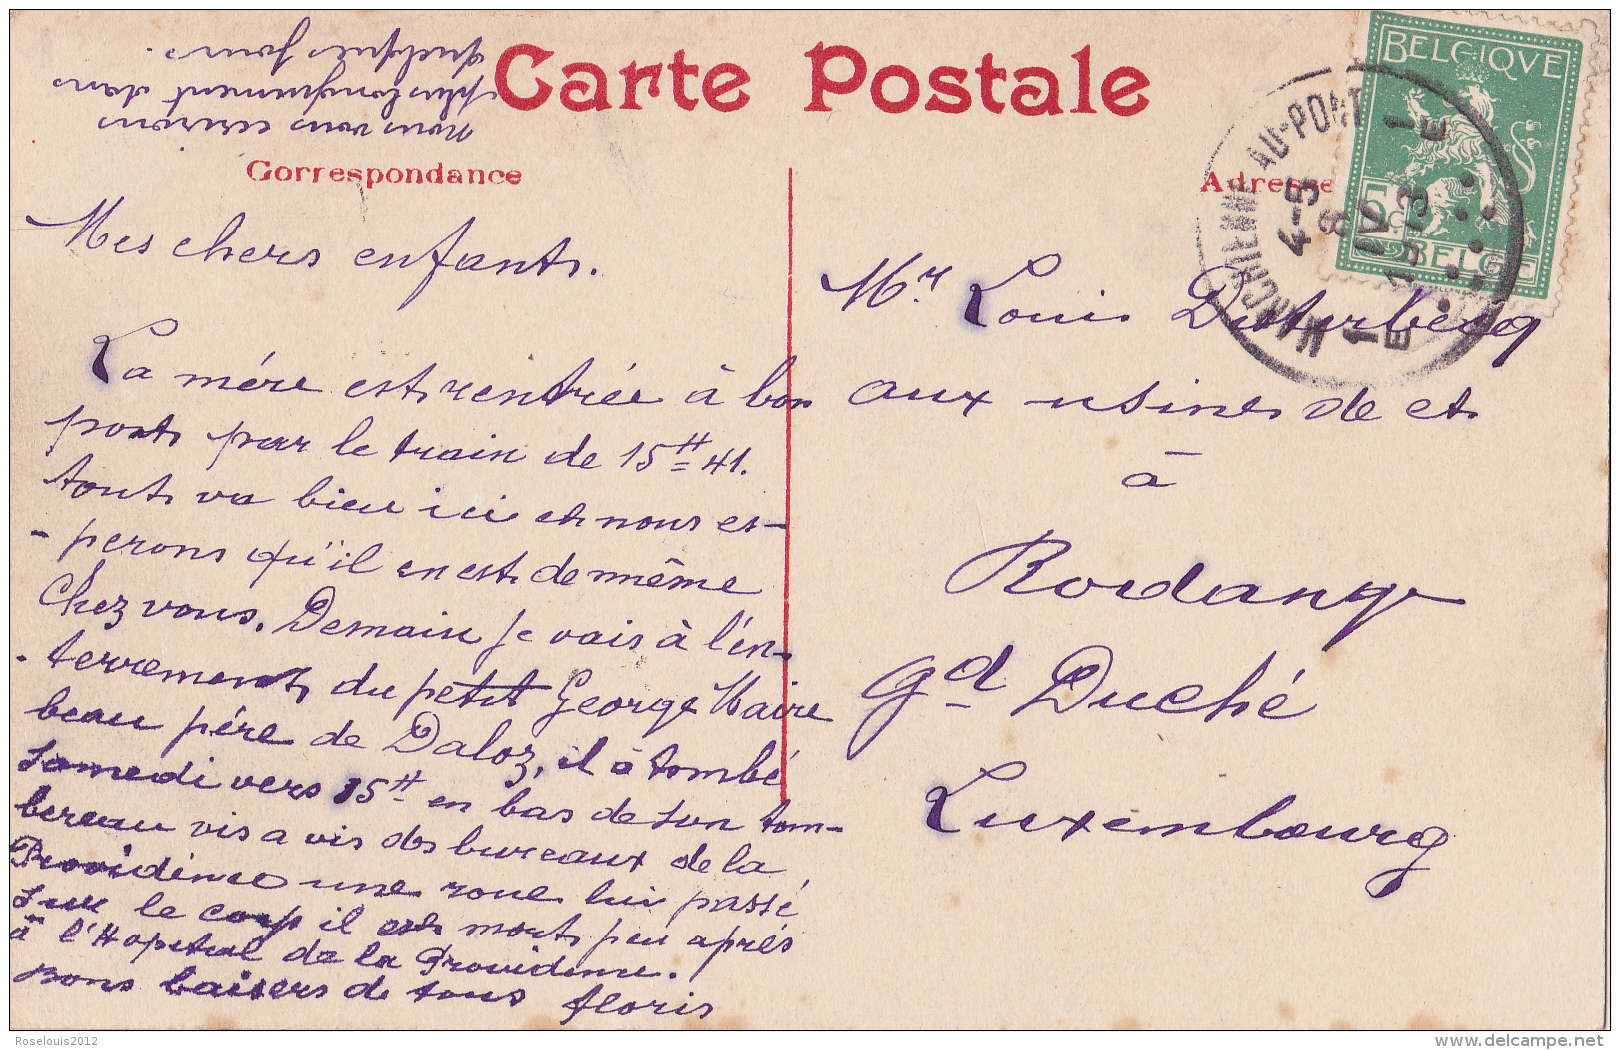 Carte Postale
Correspondance
Adresse
nous vous ecrirons
plus longuement dans
quelques jours.
Mes chers enfants.
La mére est rentrée à bon
port par le train de 15 H 41.
tout va bien ici et nous es-
-perons qu'il en est de même
Chez vous. Demain je vais à l'en-
-terrement du petit George Haire
beau pére de Daloz, il à tombé
Samedi vers 15 H en bas de son tom-
bereau vis a vis des bureaux de la
Providence une roue lui passé
sur le corp il est mort peu aprés
à l'Hopital de la Providence.
Bons baisers de tous floris
BELGIQUE
5c
BELGIE
MARCHIENNE-AU-PONT
4-5
8
IV
1913
1 E
1 E
Mr. Louis
aux usines de et
à
Rodange
Gd Duché
Luxembourg
Roselouis2012
delcampe.net